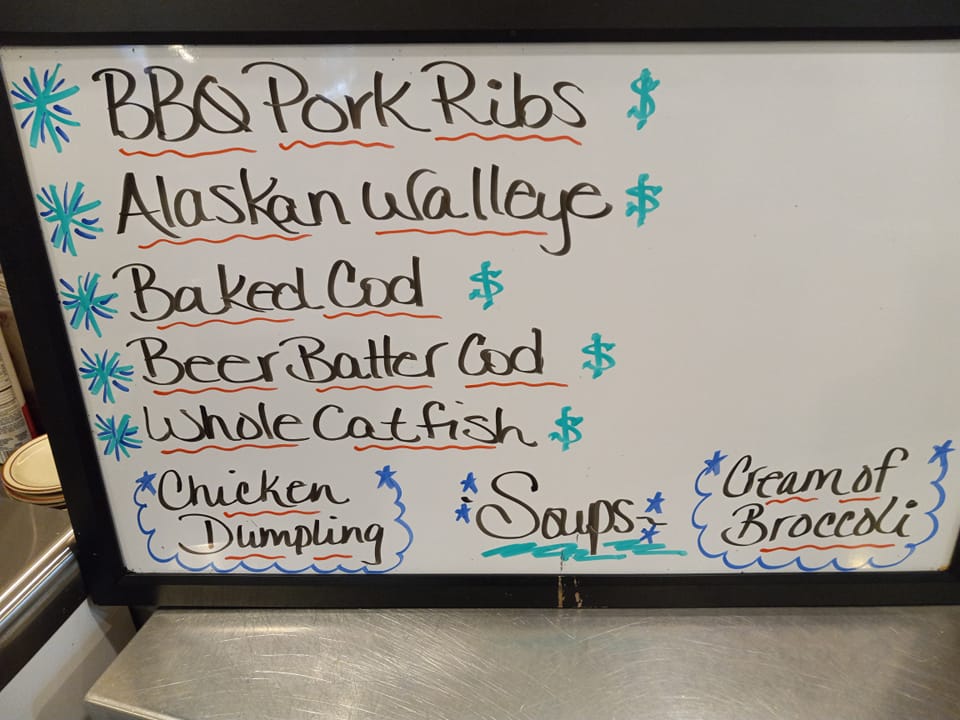 BBQ Pork Ribs $
Alaskan Walleye $
Baked Cod $
Beer Batter Cod $
Whole Catfish $
Chicken
Dumpling
Soups
Cream of
Broccoli